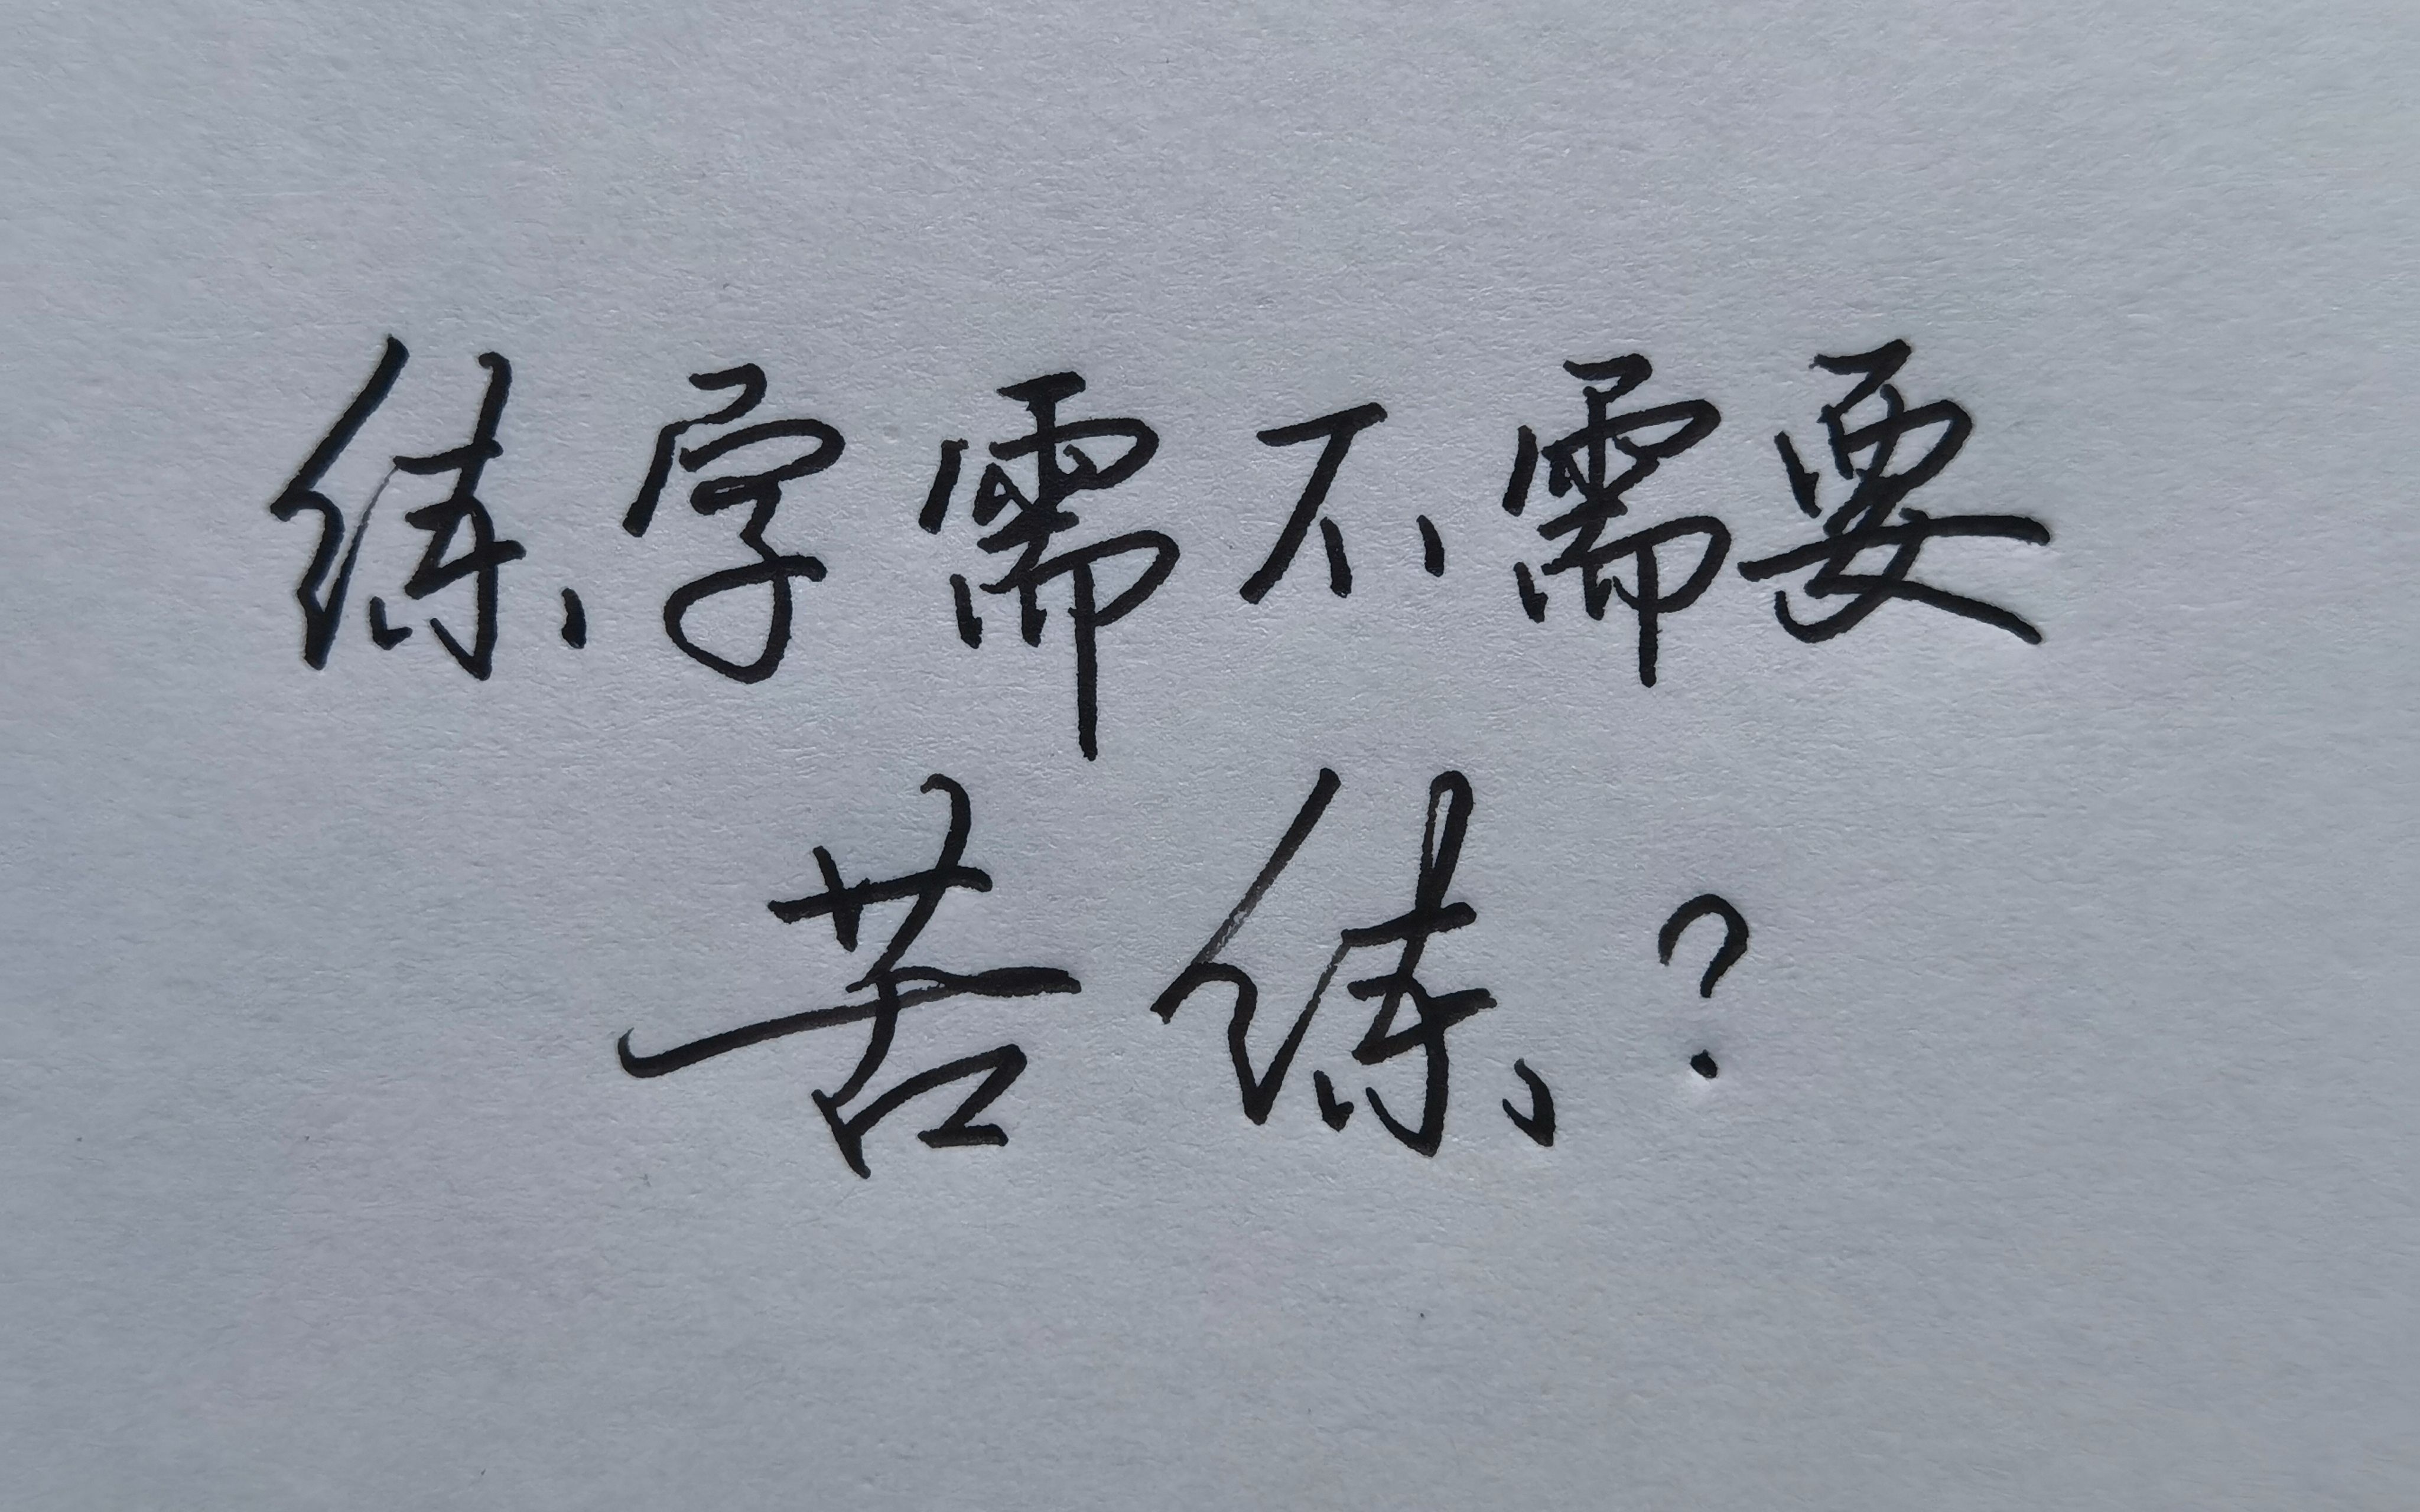 练字需不需要
苦练?